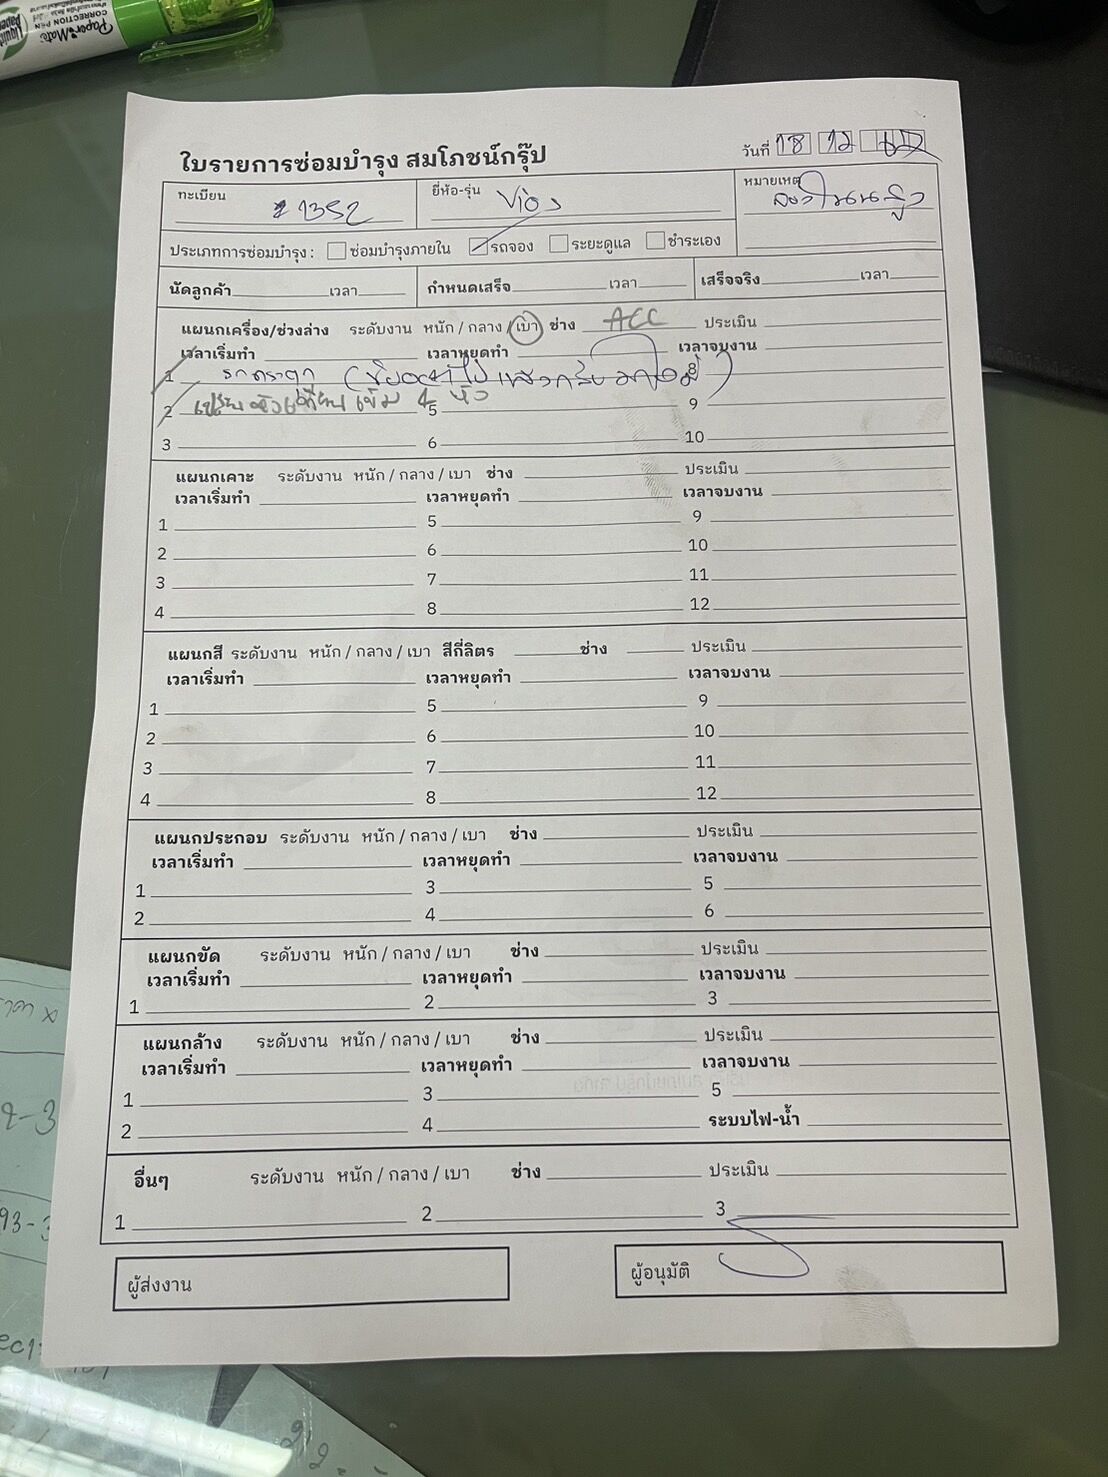 Paper Mate
CORRECTION PEN
Liquid Paper
ใบรายการซ่อมบำรุง สมโภชน์กรุ๊ป
วันที่ 18 12
ทะเบียน 1352 ยี่ห้อ-รุ่น Vios หมายเหตุ
ประเภทการซ่อมบำรุง : ซ่อมบำรุงภายใน รถจอง ระยะดูแล ชำระเอง
นัดลูกค้า เวลา กำหนดเสร็จ เวลา เสร็จจริง เวลา
แผนกเครื่อง/ช่วงล่าง ระดับงาน หนัก / กลาง / เบา ช่าง ACC ประเมิน
เวลาเริ่มทำ เวลาหยุดทำ เวลาจบงาน
1 8
2 เปลี่ยนหัวเทียนเข็ม 4 หัว 5 9
3 6 10
แผนกเคาะ ระดับงาน หนัก / กลาง / เบา ช่าง ประเมิน
เวลาเริ่มทำ เวลาหยุดทำ เวลาจบงาน
1 5 9
2 6 10
3 7 11
4 8 12
แผนกสี ระดับงาน หนัก / กลาง / เบา สีกี่ลิตร ช่าง ประเมิน
เวลาเริ่มทำ เวลาหยุดทำ เวลาจบงาน
1 5 9
2 6 10
3 7 11
4 8 12
แผนกประกอบ ระดับงาน หนัก / กลาง / เบา ช่าง ประเมิน
เวลาเริ่มทำ เวลาหยุดทำ เวลาจบงาน
1 3 5
2 4 6
แผนกขัด ระดับงาน หนัก / กลาง / เบา ช่าง ประเมิน
เวลาเริ่มทำ เวลาหยุดทำ เวลาจบงาน
1 2 3
แผนกล้าง ระดับงาน หนัก / กลาง / เบา ช่าง ประเมิน
เวลาเริ่มทำ เวลาหยุดทำ เวลาจบงาน
1 3 5
2 4 ระบบไฟ-น้ำ
อื่นๆ ระดับงาน หนัก / กลาง / เบา ช่าง ประเมิน
1 2 3
ผู้ส่งงาน ผู้อนุมัติ